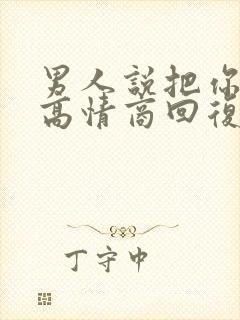 男人說把你
高情商回復
丁守中